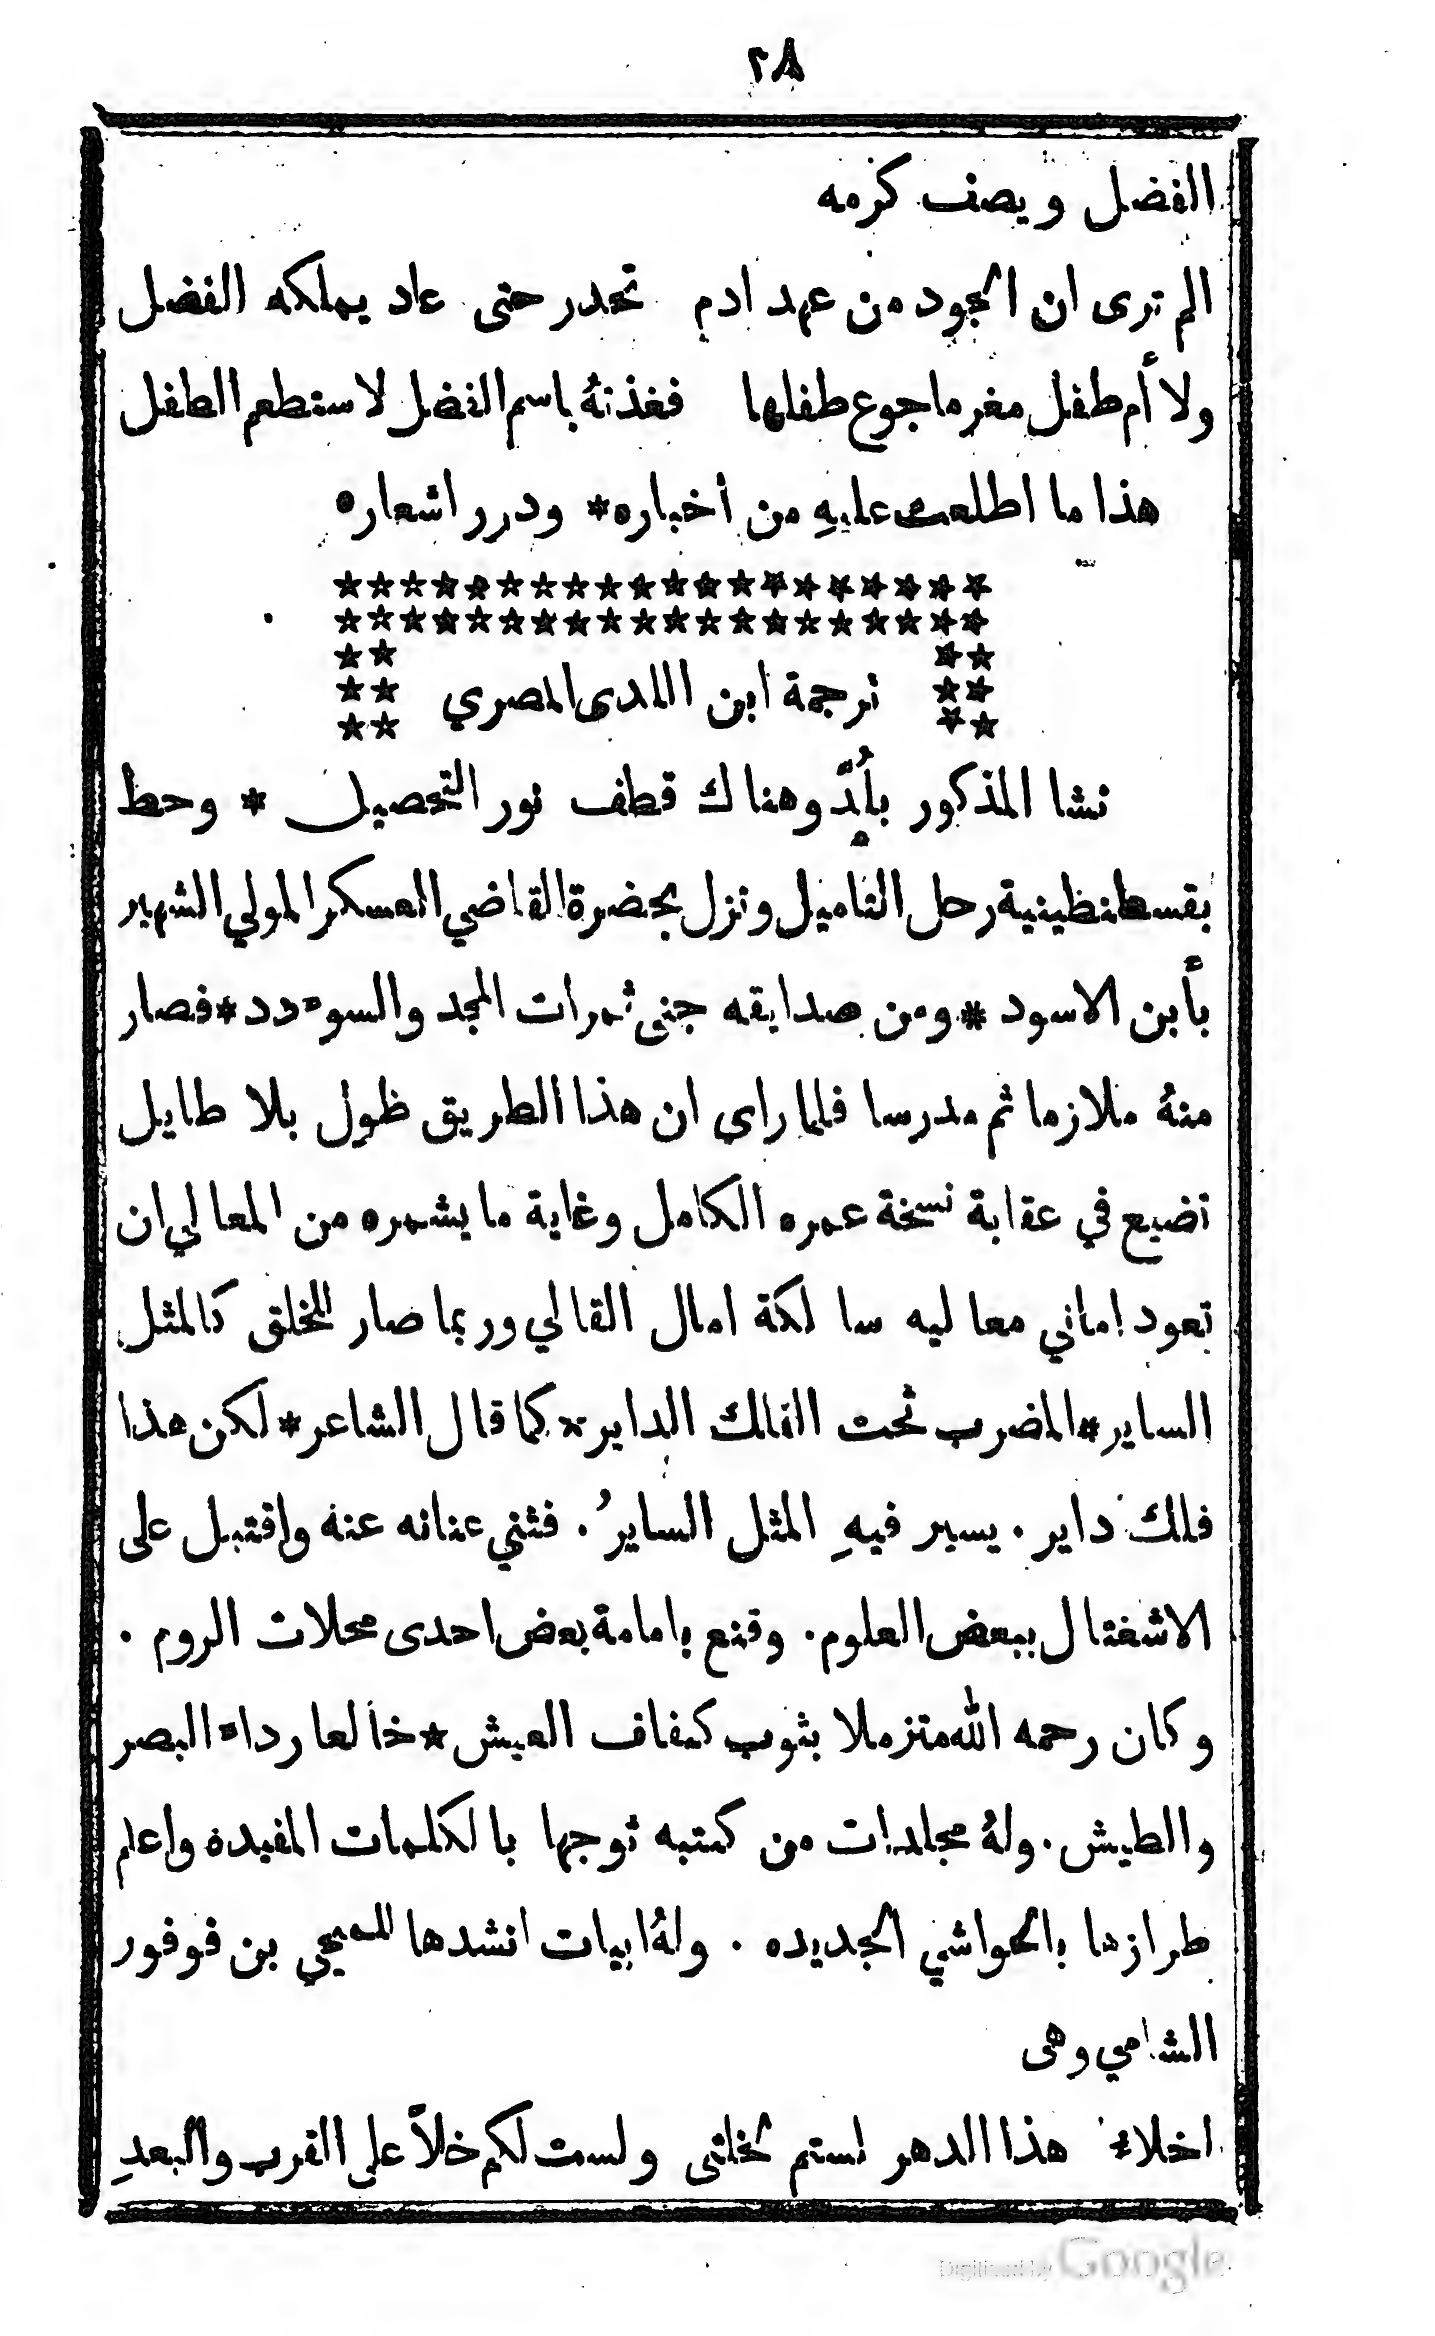 ٢٨
الفضل ويصف كرمه
الم ترى ان الجود من عهد ادم تحدر حتى عاد يملكه الفضل
ولا أم طفل مغرما جوع طفلها فغذتهُ باسم الفضل لاستطعم الطفل
هذا ما اطلعت عليهِ من أخباره* ودرر اشعاره
ترجمة ابن اللدى المصري
نشا المذكور بلُدٍّ وهناك قطف نور التحصيل * وحط
بقسطنطينية رحل التاميل ونزل بحضرة القاضي العسكر المولي الشهير
بأبن الاسود * ومن صدايقه جنى ثمرات المجد والسوءدد * فصار
منهُ ملازما ثم مدرسا فلما راى ان هذا الطريق طول بلا طايل
تضيع في عقابة نسخة عمره الكامل وغاية ما يشمره من المعالي ان
تعود اماني معاليه سالكة امال القالي وربما صار للخلق كالمثل
الساير * المضرب تحت الفلك الداير * كما قال الشاعر * لكن هذا
فلك داير . يسير فيهِ المثل السايرُ . فثني عنانه عنه واقتبل على
الاشغتال ببعض العلوم . وقنع بامامة بعض احدى محلات الروم .
وكان رحمه الله متزملا بثوب كفاف العيش * خالعا رداء البصر
والطيش . ولهُ مجلدات من كتبه توجها بالكلمات المفيده واعلم
طرازها بالحواشي الجديده . ولهُ ابيات انشدها بن فوفور
الشامي وهى
اخلاء هذا الدهر لستم بخلتى ولست لكم خلاً على القرب والبعدِ
Digitized by Google